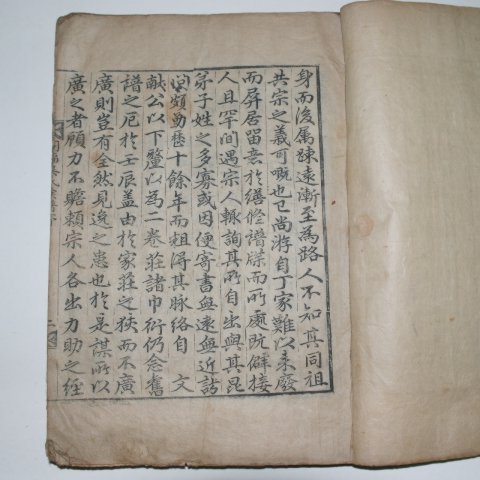 身而後属踈遠漸至為路人不知其同祖
共宗之義可嘅也已尚游自丁家難以来廢
而屏居留意於繕脩譜牒而所處既僻接
人且罕間遇宗人輒詢其所自出與其昆
弟子姓之多寡或因便寄書無遠無近訪
問頗勤舊十餘年而粗得其脉絡自 文
献公以下釐以為二卷莊諸巾衍仍念舊
譜之厄於壬辰盖由於家莊之狹而不廣
廣則豈有全然見逸之患也於是謀所以
廣之者顧力不贍頼宗人各出力助之經